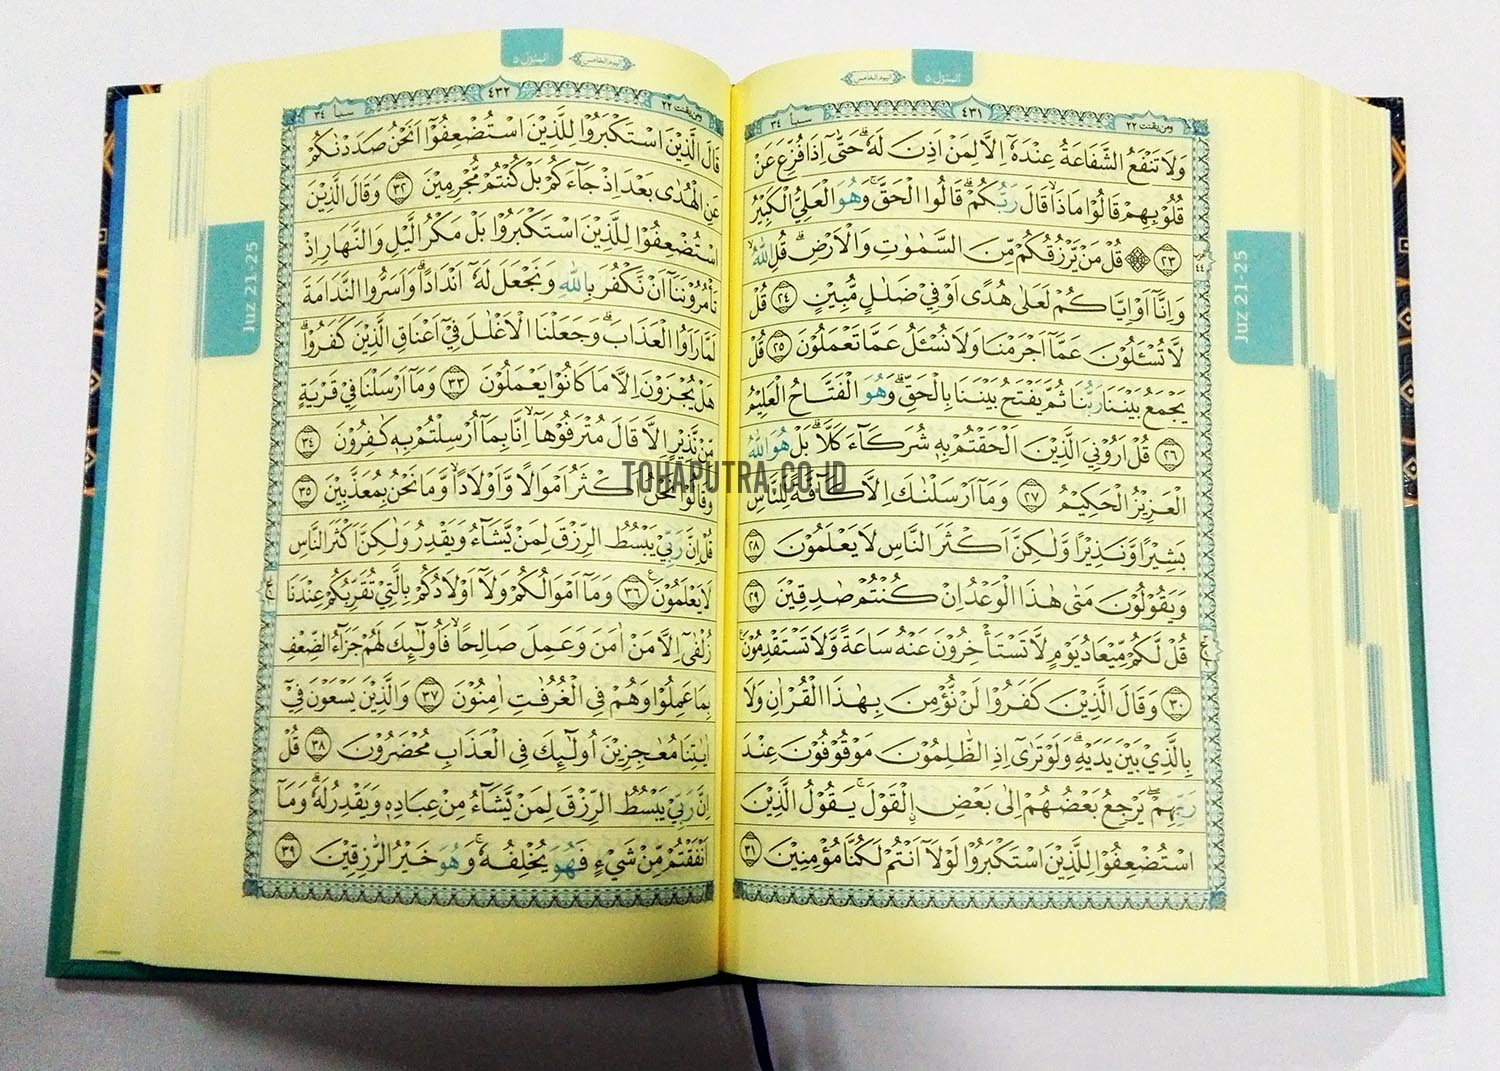 المنزل ٥
اليوم الخامس
ومن يقنت ٢٢
٤٣١
سبأ ٣٤
وَلَا تَنْفَعُ الشَّفَاعَةُ عِنْدَهٗٓ اِلَّا لِمَنْ اَذِنَ لَهٗۗ حَتّٰىٓ اِذَا فُزِّعَ عَنْ
قُلُوْبِهِمْ قَالُوْا مَاذَاۙ قَالَ رَبُّكُمْۗ قَالُوا الْحَقَّۚ وَهُوَ الْعَلِيُّ الْكَبِيْرُ
٢٣ ۞ قُلْ مَنْ يَّرْزُقُكُمْ مِّنَ السَّمٰوٰتِ وَالْاَرْضِۗ قُلِ اللّٰهُۙ
وَاِنَّآ اَوْ اِيَّاكُمْ لَعَلٰى هُدًى اَوْ فِيْ ضَلٰلٍ مُّبِيْنٍ ٢٤ قُلْ
لَّا تُسْـَٔلُوْنَ عَمَّآ اَجْرَمْنَا وَلَا نُسْـَٔلُ عَمَّا تَعْمَلُوْنَ ٢٥ قُلْ
يَجْمَعُ بَيْنَنَا رَبُّنَا ثُمَّ يَفْتَحُ بَيْنَنَا بِالْحَقِّۗ وَهُوَ الْفَتَّاحُ الْعَلِيْمُ
٢٦ قُلْ اَرُوْنِيَ الَّذِيْنَ اَلْحَقْتُمْ بِهٖ شُرَكَاۤءَ كَلَّاۗ بَلْ هُوَ اللّٰهُ
الْعَزِيْزُ الْحَكِيْمُ ٢٧ وَمَآ اَرْسَلْنٰكَ اِلَّا كَاۤفَّةً لِّلنَّاسِ
بَشِيْرًا وَّنَذِيْرًا وَّلٰكِنَّ اَكْثَرَ النَّاسِ لَا يَعْلَمُوْنَ ٢٨
وَيَقُوْلُوْنَ مَتٰى هٰذَا الْوَعْدُ اِنْ كُنْتُمْ صٰدِقِيْنَ ٢٩
قُلْ لَّكُمْ مِّيْعَادُ يَوْمٍ لَّا تَسْتَأْخِرُوْنَ عَنْهُ سَاعَةً وَّلَا تَسْتَقْدِمُوْنَ ࣖ
٣٠ وَقَالَ الَّذِيْنَ كَفَرُوْا لَنْ نُّؤْمِنَ بِهٰذَا الْقُرْاٰنِ وَلَا
بِالَّذِيْ بَيْنَ يَدَيْهِۗ وَلَوْ تَرٰىٓ اِذِ الظّٰلِمُوْنَ مَوْقُوْفُوْنَ عِنْدَ
رَبِّهِمْۖ يَرْجِعُ بَعْضُهُمْ اِلٰى بَعْضِ ۨالْقَوْلَۚ يَقُوْلُ الَّذِيْنَ
اسْتُضْعِفُوْا لِلَّذِيْنَ اسْتَكْبَرُوْا لَوْلَآ اَنْتُمْ لَكُنَّا مُؤْمِنِيْنَ ٣١
Juz 21-25
المنزل ٥
اليوم الخامس
ومن يقنت ٢٢
٤٣٢
سبأ ٣٤
قَالَ الَّذِيْنَ اسْتَكْبَرُوْا لِلَّذِيْنَ اسْتُضْعِفُوْٓا اَنَحْنُ صَدَدْنٰكُمْ
عَنِ الْهُدٰى بَعْدَ اِذْ جَاۤءَكُمْ بَلْ كُنْتُمْ مُّجْرِمِيْنَ ٣٢ وَقَالَ الَّذِيْنَ
اسْتُضْعِفُوْا لِلَّذِيْنَ اسْتَكْبَرُوْا بَلْ مَكْرُ الَّيْلِ وَالنَّهَارِ اِذْ
تَأْمُرُوْنَنَآ اَنْ نَّكْفُرَ بِاللّٰهِ وَنَجْعَلَ لَهٗٓ اَنْدَادًاۗ وَاَسَرُّوا النَّدَامَةَ
لَمَّا رَاَوُا الْعَذَابَۗ وَجَعَلْنَا الْاَغْلٰلَ فِيْٓ اَعْنَاقِ الَّذِيْنَ كَفَرُوْاۗ
هَلْ يُجْزَوْنَ اِلَّا مَا كَانُوْا يَعْمَلُوْنَ ٣٣ وَمَآ اَرْسَلْنَا فِيْ قَرْيَةٍ
مِّنْ نَّذِيْرٍ اِلَّا قَالَ مُتْرَفُوْهَآۙ اِنَّا بِمَآ اُرْسِلْتُمْ بِهٖ كٰفِرُوْنَ ٣٤
وَقَالُوْا نَحْنُ اَكْثَرُ اَمْوَالًا وَّاَوْلَادًاۙ وَّمَا نَحْنُ بِمُعَذَّبِيْنَ ٣٥
قُلْ اِنَّ رَبِّيْ يَبْسُطُ الرِّزْقَ لِمَنْ يَّشَاۤءُ وَيَقْدِرُ وَلٰكِنَّ اَكْثَرَ النَّاسِ
لَا يَعْلَمُوْنَ ࣖ ٣٦ وَمَآ اَمْوَالُكُمْ وَلَآ اَوْلَادُكُمْ بِالَّتِيْ تُقَرِّبُكُمْ عِنْدَنَا
زُلْفٰىٓ اِلَّا مَنْ اٰمَنَ وَعَمِلَ صَالِحًاۙ فَاُولٰۤىِٕكَ لَهُمْ جَزَاۤءُ الضِّعْفِ
بِمَا عَمِلُوْا وَهُمْ فِى الْغُرُفٰتِ اٰمِنُوْنَ ٣٧ وَالَّذِيْنَ يَسْعَوْنَ فِيْٓ
اٰيٰتِنَا مُعٰجِزِيْنَ اُولٰۤىِٕكَ فِى الْعَذَابِ مُحْضَرُوْنَ ٣٨ قُلْ
اِنَّ رَبِّيْ يَبْسُطُ الرِّزْقَ لِمَنْ يَّشَاۤءُ مِنْ عِبَادِهٖ وَيَقْدِرُ لَهٗۗ وَمَآ
اَنْفَقْتُمْ مِّنْ شَيْءٍ فَهُوَ يُخْلِفُهٗۚ وَهُوَ خَيْرُ الرّٰزِقِيْنَ ٣٩
Juz 21-25
TOHAPUTRA.CO.ID